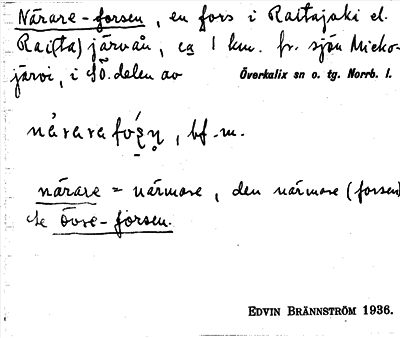 Närare-forsen, en fors i Raitajoki el.
Rai(ta)järvån, ca 1 km. fr. sjön Micko-
järvi, i SÖ. delen av Överkalix sn o. tg. Norrb. l.
bf. m.
närare = närmare, den närmare (forsen)
Se Övre-forsen.
EDVIN BRÄNNSTRÖM 1936.